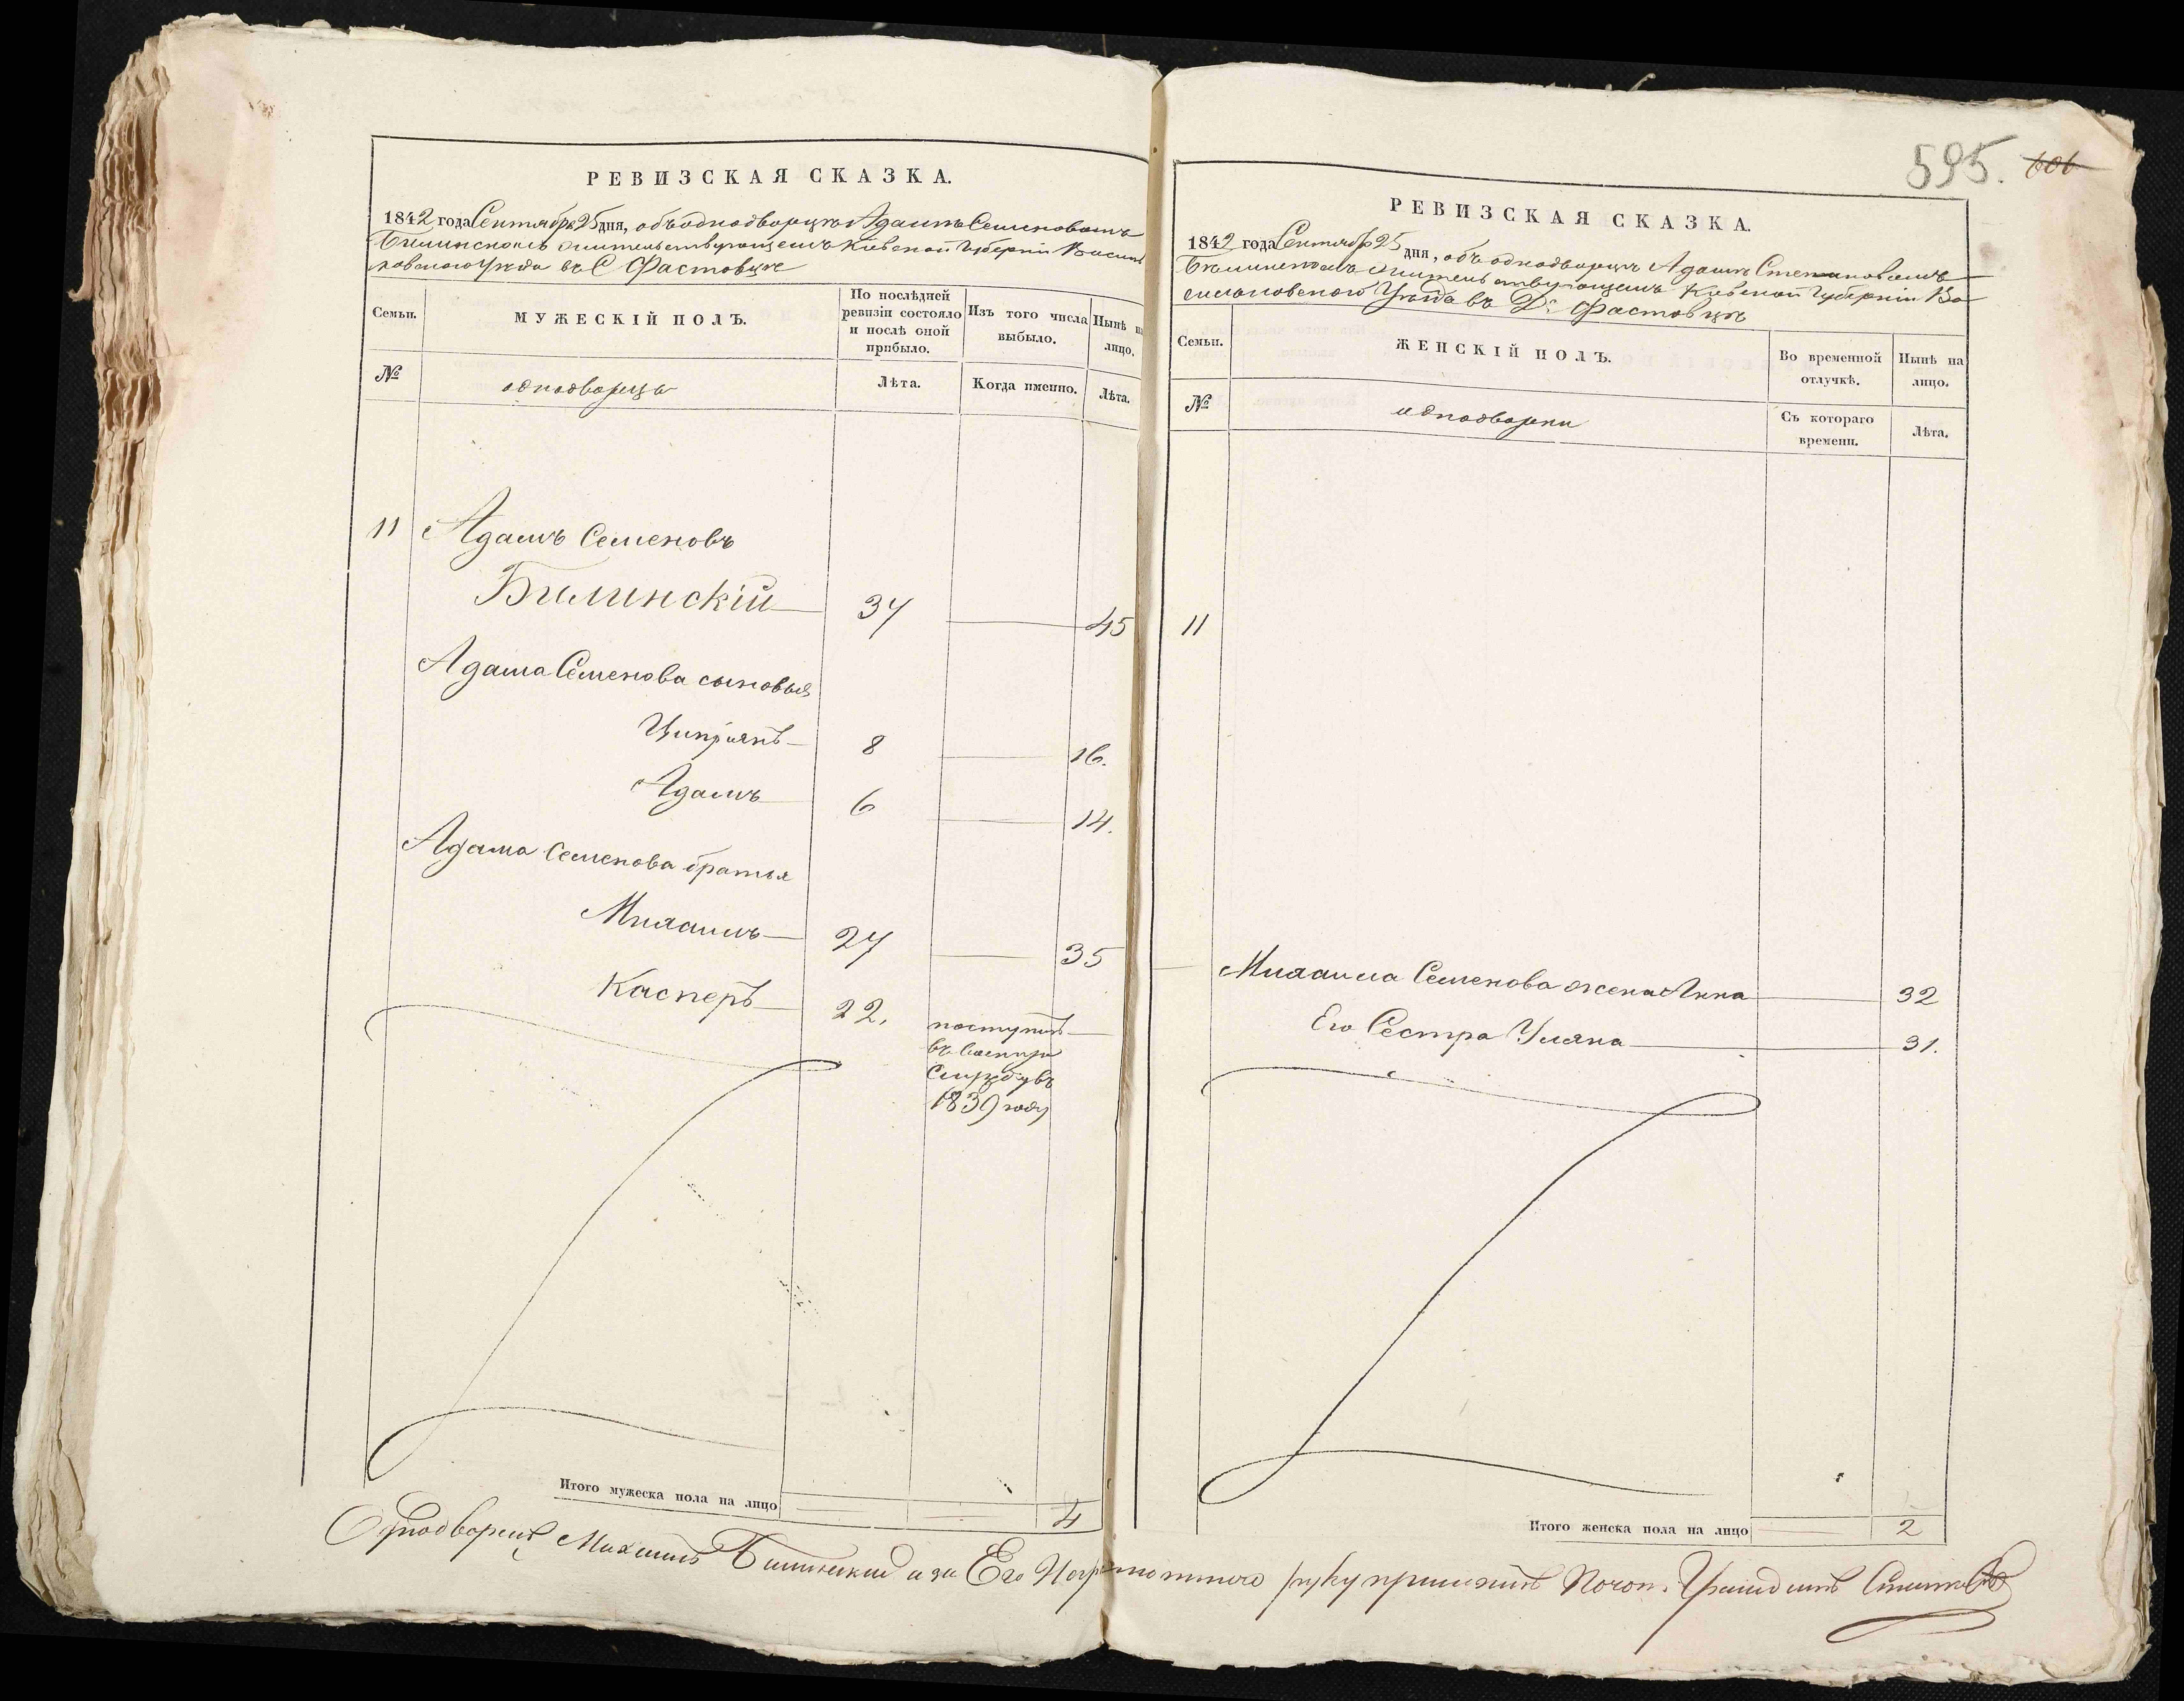 РЕВИЗСКАЯ СКАЗКА.
1842 года Сентября 25 дня, объ однодворцѣ Адамѣ Семеновомъ
Билинскомъ жительствующемъ Кіевской Губерніи Василь
ковскаго Уѣзда въ С Фастовцѣ
Семьи.
МУЖЕСКІЙ ПОЛЪ.
По послѣдней
ревизіи состояло
и послѣ оной
прибыло.
Изъ того числа
выбыло.
Нынѣ на
лицо.
№
однодворцы
Лѣта.
Когда именно.
Лѣта.
11 Адамъ Семеновъ
Билинскій 37 45
Адама Семенова сыновья
Ципріянъ 8 16.
Адамъ 6 14.
Адама Семенова братья
Михаилъ 27 35
Касперъ 22. поступилъ
въ
Службу въ
1839 году
Итого мужеска пола на лицо 4
595. 606
РЕВИЗСКАЯ СКАЗКА.
1842 года Сентября 25 дня, объ однодворцѣ Адамѣ
Билинскомъ жительствующемъ Кіевской Губерніи Ва
сильковского Уѣзда въ Д. Фастовцѣ
Семьи.
ЖЕНСКІЙ ПОЛЪ.
Во временной
отлучкѣ.
Нынѣ на
лицо.
№
однодворки
Съ котораго
времени.
Лѣта.
11
Михаила Семенова жена Анна 32
Его Сестра Уляна 31.
Итого женска пола на лицо 2
Однодворецъ Михаилъ Билинский а за Его Неграмотного руку приложилъ